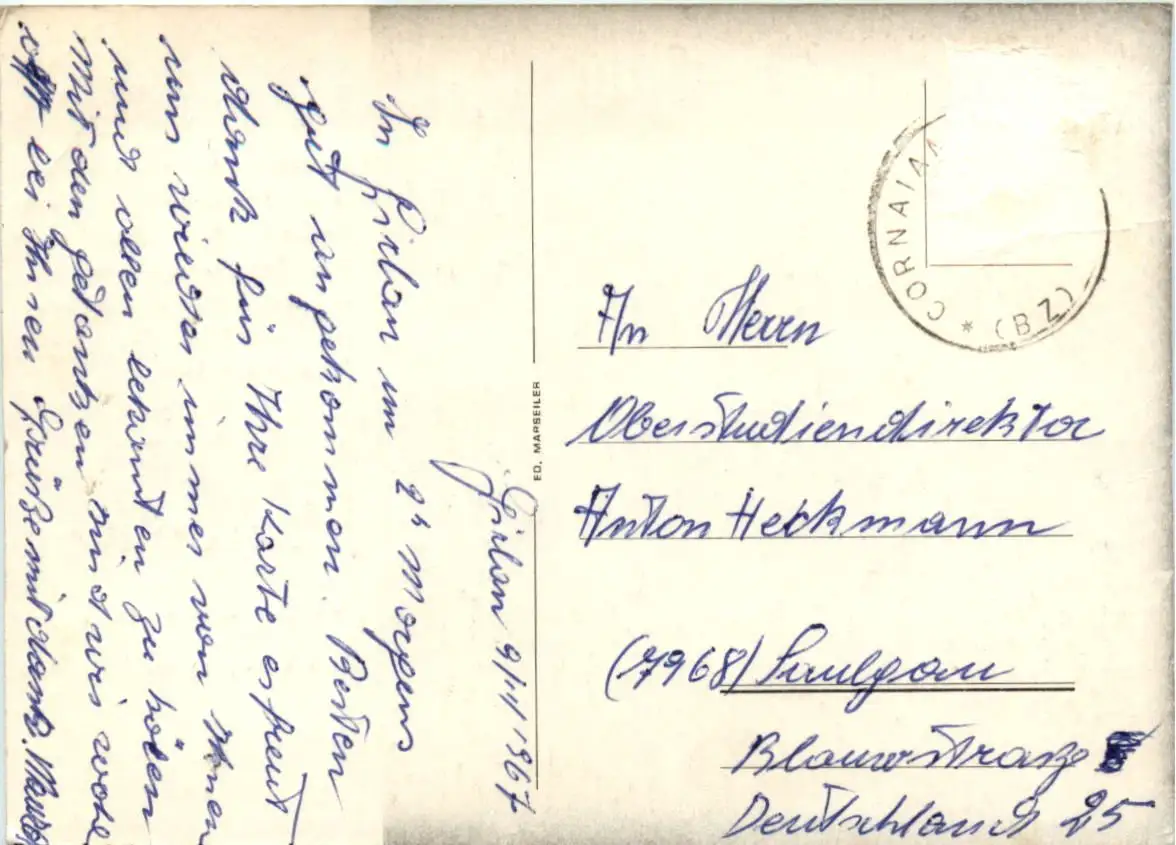 Girlan 9/11 1967
In Girlan um 2h Morgens
gut angekommen. Besten
dank für Ihre Karte es freut
uns wieder immer von Ihnen
und allen bekanten zu hören
Mit den gedanken sind wir wohl
oft bei Ihnen Grüße mit dank.
ED. MARSEILER
CORNAIA
* (BZ)
An Herrn
Oberstudiendirektor
Anton Heckmann
(7968) Saulgau
Blauwstraße
Deutschland 25